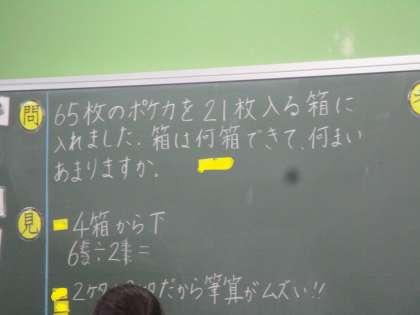 問
65枚のポケカを21枚入る箱に
入れました。箱は何箱できて、何まい
あまりますか。
見
4箱から下
2ケタ だから筆算がムズい!!